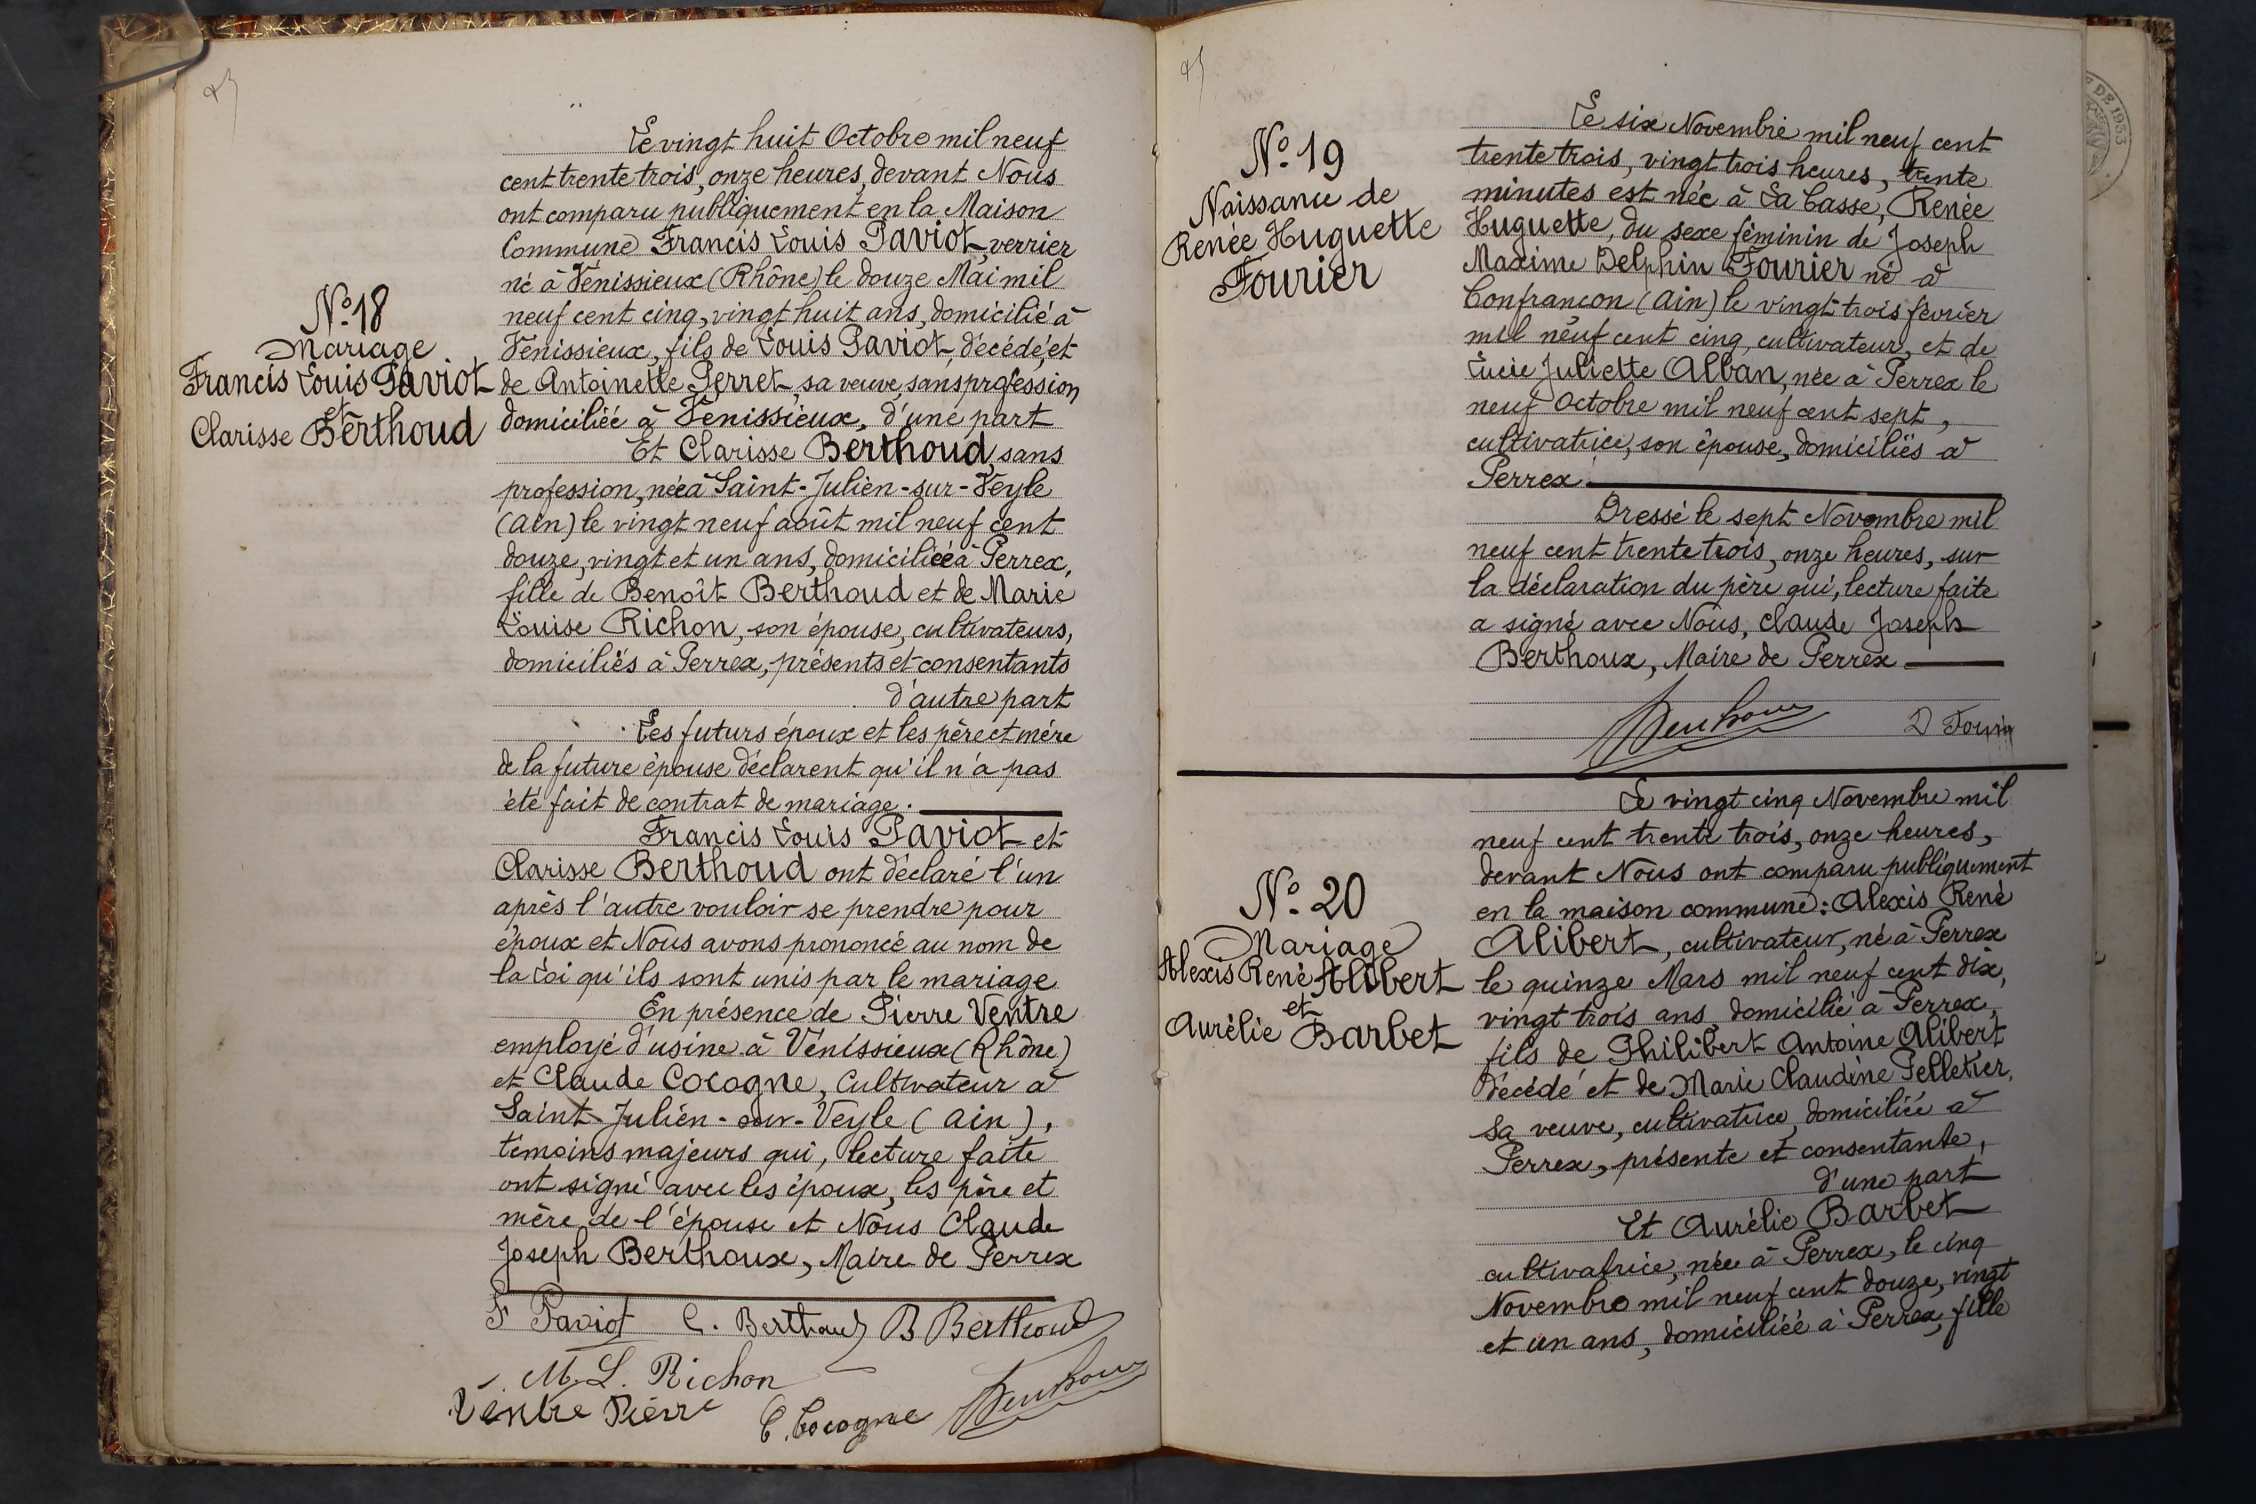 Le vingt huit Octobre mil neuf
cent trente trois, onze heures, devant Nous
ont comparu publiquement en la Maison
Commune Francis Louis Paviot, verrier
né à Vénissieux (Rhône) le douze Mai mil
neuf cent cinq, vingt huit ans, domicilié à
Vénissieux, fils de Louis Paviot décédé, et
de Antoinette Perret, sa veuve, sans profession
domiciliée à Venissieux, d'une part
Et Clarisse Berthoud, sans
profession, née à Saint-Julien-sur-Veyle
(Ain) le vingt neuf août mil neuf cent
douze, vingt et un ans, domiciliée à Perrex,
fille de Benoît Berthoud et de Marie
Louise Richon, son épouse, cultivateurs,
domiciliés à Perrex, présents et consentants
d'autre part
Les futurs époux et les père et mère
de la future épouse déclarent qu'il n'a pas
été fait de contrat de mariage.
Francis Louis Paviot et
Clarisse Berthoud ont déclaré l'un
après l'autre vouloir se prendre pour
époux et Nous avons prononcé au nom de
la Loi qu'ils sont unis par le mariage
En présence de Pierre Ventre
employé d'usine à Vénissieux (Rhône)
et Claude Cocogne, Cultivateur à
Saint-Julien-sur-Veyle (Ain),
témoins majeurs qui, lecture faite
ont signé avec les époux, les père et
mère de l'épouse et Nous Claude
Joseph Berthoux, Maire de Perrex
N° 18
Mariage
Francis Louis Paviot
et
Clarisse Berthoud
F Paviot C. Berthoud B Berthoud
M. L. Richon
Ventre Pierre C. Cocogne Berthoux
N° 19
Naissance de
Renée Huguette
Fourier
Le six Novembre mil neuf cent
trente trois, vingt trois heures, trente
minutes est née à La Casse, Renée
Huguette, du sexe féminin de Joseph
Maxime Delphin Fourier né à
Confrançon (Ain) le vingt trois février
mil neuf cent cinq, cultivateur, et de
Lucie Juliette Alban, née à Perrex le
neuf Octobre mil neuf cent sept,
cultivatrice, son épouse, domiciliés à
Perrex
Dressé le sept Novembre mil
neuf cent trente trois, onze heures, sur
la déclaration du père qui, lecture faite
a signé avec Nous, Claude Joseph
Berthoux, Maire de Perrex
Berthoux D Fourier
N° 20
Mariage
Alexis René Alibert
et
Aurélie Barbet
Le vingt cinq Novembre mil
neuf cent trente trois, onze heures,
devant Nous ont comparu publiquement
en la maison commune: Alexis René
Alibert, cultivateur, né à Perrex
le quinze Mars mil neuf cent dix,
vingt trois ans domicilié à Perrex,
fils de Philibert Antoine Alibert
décédé et de Marie Claudine Pelletier,
sa veuve, cultivatrice, domiciliée à
Perrex, présente et consentante,
d'une part
Et Aurélie Barbet
cultivatrice, née à Perrex, le cinq
Novembre mil neuf cent douze, vingt
et un ans, domiciliée à Perrex, fille
DE 1933